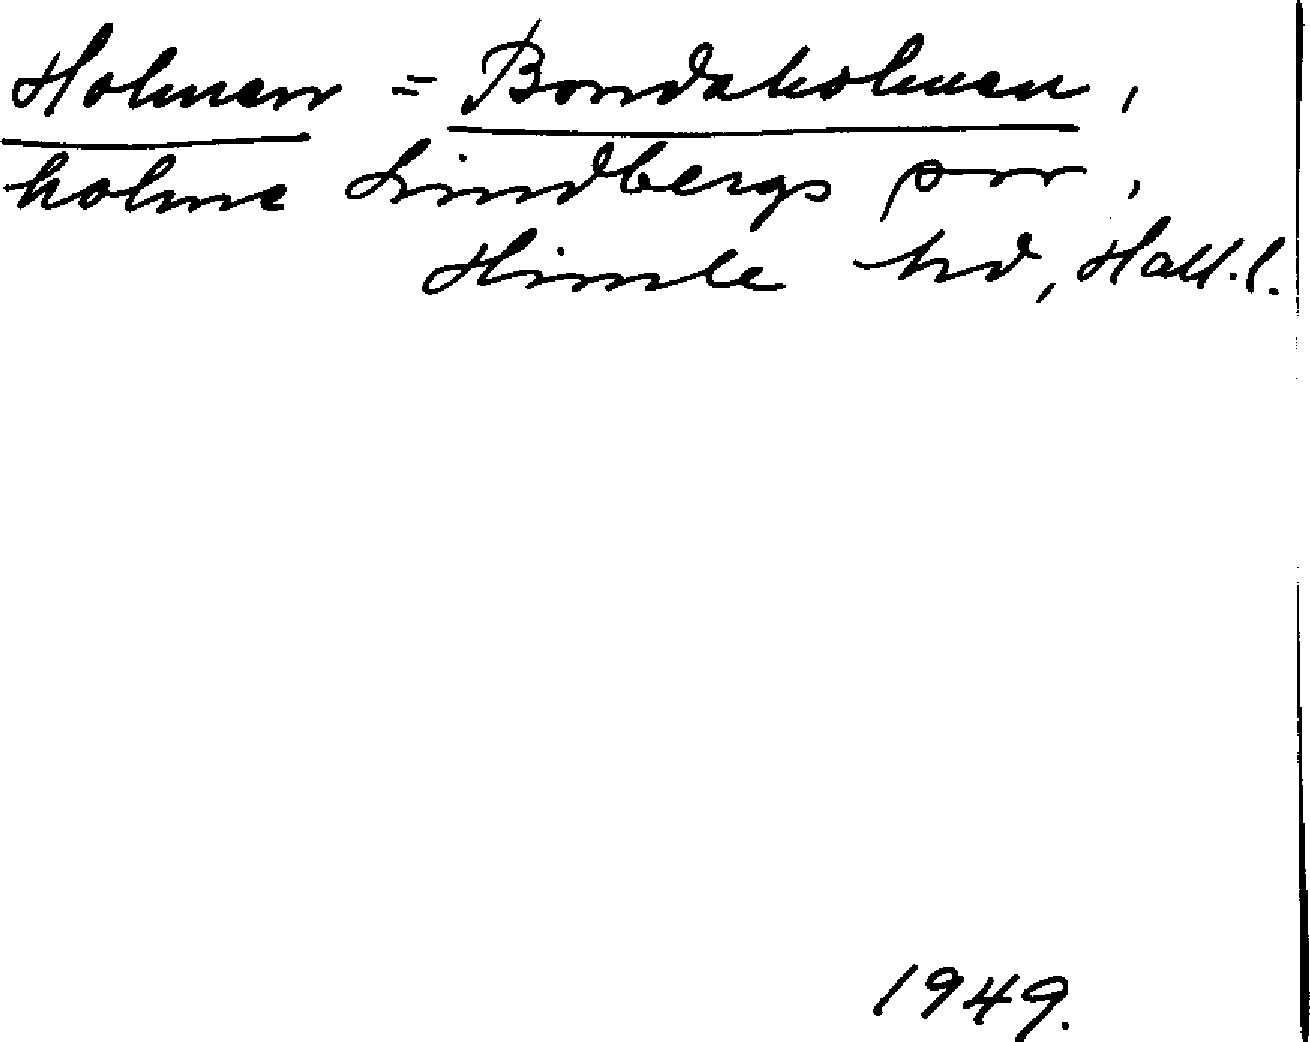 Holmen = Bondaholmen,
holme Lindbergs sn,
Himle hd, Hall.l.
1949.